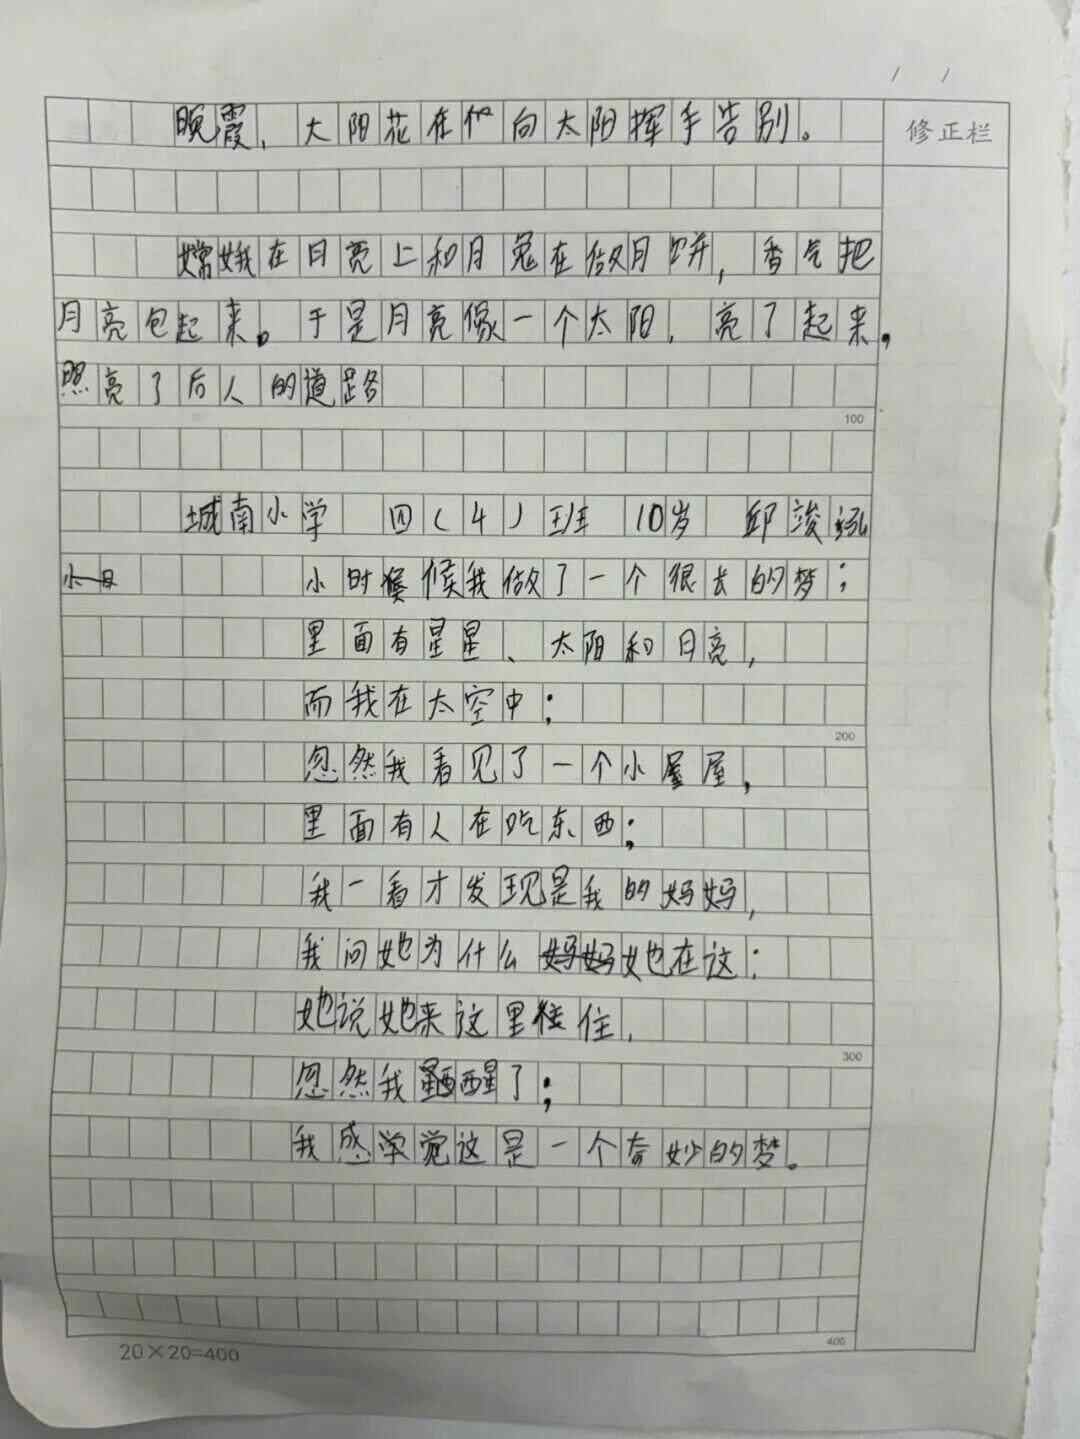 / /
修正栏
晚霞，太阳花在他向太阳挥手告别。
嫦娥在月亮上和月兔在做月饼，香气把
月亮包起来。于是月亮像一个太阳，亮了起来，
照亮了后人的道路
100
城南小学 四（4）班 10岁 邱竣泓
小时候我做了一个很长的梦；
里面有星星、太阳和月亮，
而我在太空中；
200
忽然我看见了一个小屋，
里面有人在吃东西；
我一看才发现是我的妈妈，
我问她为什么她在这：
她说她来这里住，
300
忽然我醒了；
我感觉这是一个奇妙的梦。
400
20×20=400